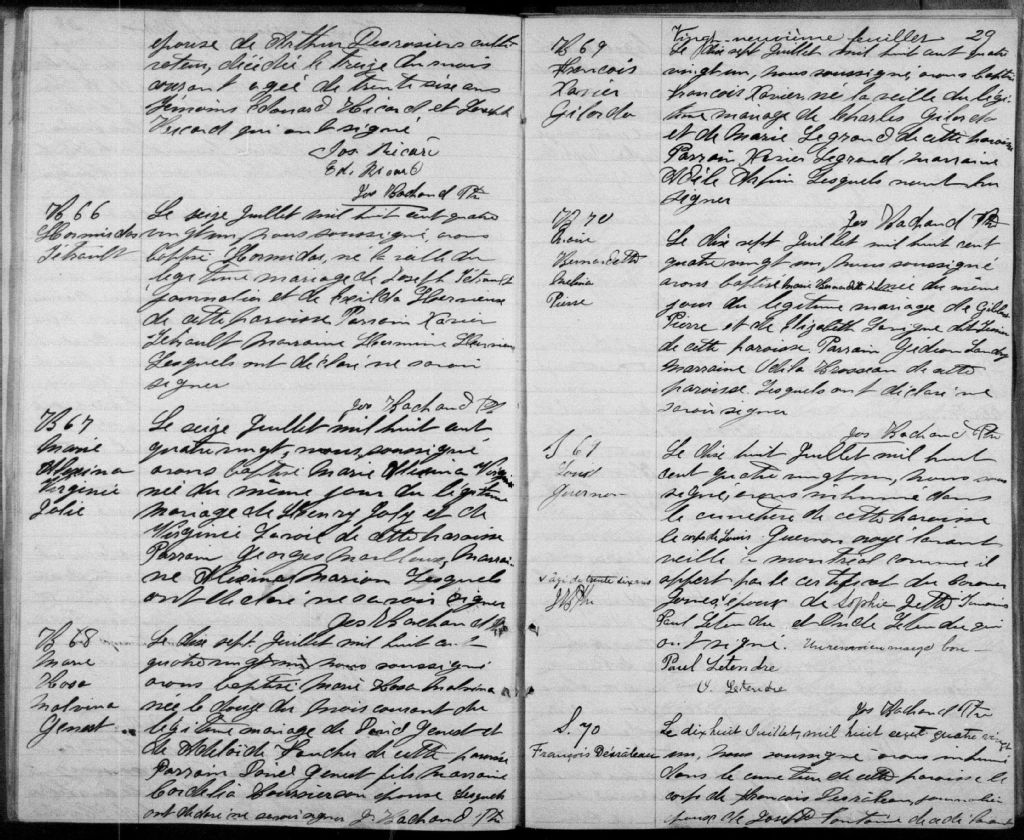 epouse de Arthur Desrosiers culti-
vateur, décédé le treize du mois
courant agée de trente six ans
Témoins Edouard Ricard et Joseph
Ricard qui ont signé
Jos Ricard
Ed. Ricard
Jos Bachand Ptr
B 66
Hormisdas
Tétrault
Le seize Juillet mil huit cent quatre
vingt un, nous soussigné, avons
baptisé Hormidas, né la veille du
légitime mariage de Joseph Tétrault
journalier et de Exilda
de cette paroisse Parrain Xavier
Tétrault Marraine Hermine
Lesquels ont déclaré ne savoir
signer
Jos Bachand Pt
B 67
Marie
Alexina
Virginie
Jolie
Le seize Juillet mil huit cent
quatre vingt, nous, soussigné
avons baptisé Marie Alexina Virginie
née du même jour du légitime
mariage de Henry Joly et de
Virginie de cette paroisse
Parrain Georges Marrai-
ne Alexina Marion Lesquels
ont déclaré ne savoir signer
Jos Bachand Ptr
B 68
Marie
Rosa
Malvina
Genest
Le dix sept Juillet mil huit cent
quatre vingt un nous soussigné
avons baptisé Marie Rosa Malvina
née le douze du mois courant du
légitime mariage de David Genest et
de Adelaide de cette paroisse
Parrain David Genest fils Marraine
Cordelia son epouse Lesquels
ont déclaré ne savoir signer J. Bachand Ptr
Vingt-neuvième feuillet 29
B 69
François
Xavier
Gilordo
Le dix sept Juillet mil huit cent quatre
vingt un, nous soussigné, avons baptisé
François Xavier né la veille du légi-
time mariage de Charles Gilordo
et de Marie Legrand de cette paroisse
Parrain Xavier Legrand, marraine
Adèle Lesquels n'ont su
signer
Jos Bachand Ptr
B 70
Marie
Bernadette
Melina
Pierre
Le dix sept Juillet mil huit cent
quatre vingt un, nous soussigné
avons baptisé Marie Bernadette née du même
jour du légitime mariage de
Pierre et de Elizabeth Lavigne dit
de cette paroisse. Parrain Gedeon
Marraine Odila Brosseau de cette
paroisse. Lesquels ont déclaré ne
savoir signer
Jos Bachand Ptr
S 69
Louis
Guernon
Le dix huit Juillet mil huit
cent quatre vingt un, nous sous
signé, avons inhumé dans
le cimetière de cette paroisse
le corps de Louis Guernon noyé
veille à Montreal comme il
appert par le certificat du Coroner
Jones epoux de Sophie Jetté Témoins
Paul Letendre et Letendre qui
ont signé. Un renvoi en marge bon
v agé de trente six ans
J B Ptr
Paul Letendre
U. Letendre
Jos Bachand Ptr
S. 70
François Désrâleau
Le dix huit Juillet, mil huit cent quatre vingt
un, nous soussigné avons inhumé
dans le cimetière de cette paroisse le
corps de Francois journalier
epoux de Josephte Fontaine décédé